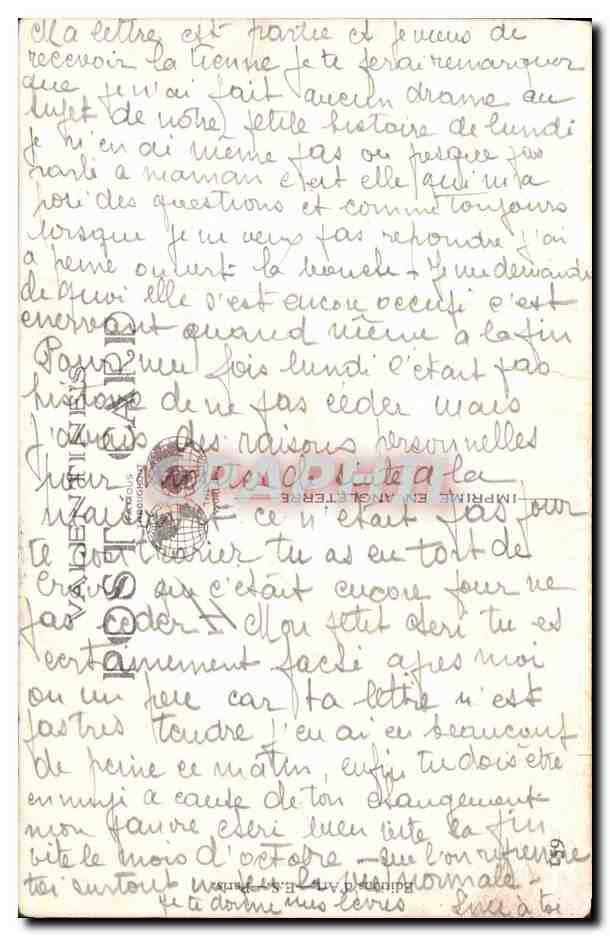 Ma lettre est partie et je viens de
recevoir la tienne je te ferai remarquer
que je n'ai fait aucun drame au
sujet de notre petite histoire de lundi
je n'en ai même pas ou presque pas
parlé a maman c'est elle qui m'a
posé des questions et comme toujours
lorsque je ne veux pas repondre j'ai
a peine ouvert la bouche - Je me demande
de quoi elle s'est encore occupé c'est
enervant quand même a la fin
Pour une fois lundi c'était pas
histoire de ne pas céder mais
j'avais des raisons personnelles
pour rentrer de suite a la
maison et ce n'était pas pour
te contrarier tu as eu tort de
croire que c'était encore pour ne
pas ceder. Mon petit cheri tu es
certainement faché apres moi
ou un peu car ta lettre n'est
pas tres tendre j'en ai eu beaucoup
de peine ce matin, enfin tu dois être
ennuyé a cause de ton changement
mon pauvre cheri bien vite la fin
vite le mois d'octobre - que l'on reprenne
toi surtout une vie normale -
je te donne mes lèvres à toi
VALENTINE'S
POST CARD
IMPRIME EN ANGLETERRE
CPAPHIL
Editions d'Art - E.S. - Paris